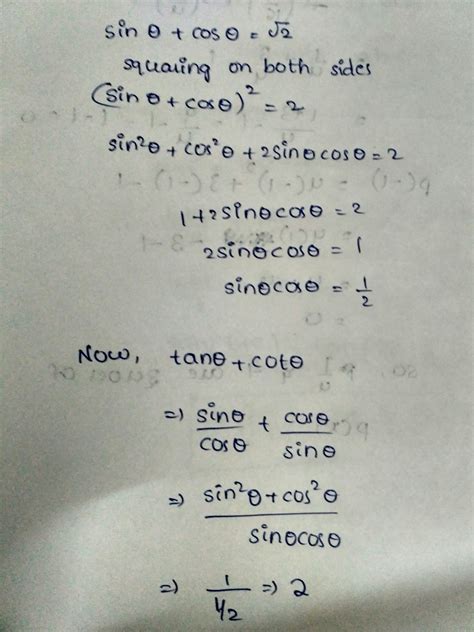 sin θ + cos θ = √2
squaring on both sides
(sin θ + cosθ)² = 2
sin²θ + cos²θ + 2sinθcosθ = 2
1+2sinθcosθ = 2
2sinθcosθ = 1
sinθcosθ = 1/2
Now, tanθ + cotθ
=) sinθ/cosθ + cosθ/sinθ
=) sin²θ + cos²θ / sinθcosθ
=) 1/1/2 =) 2